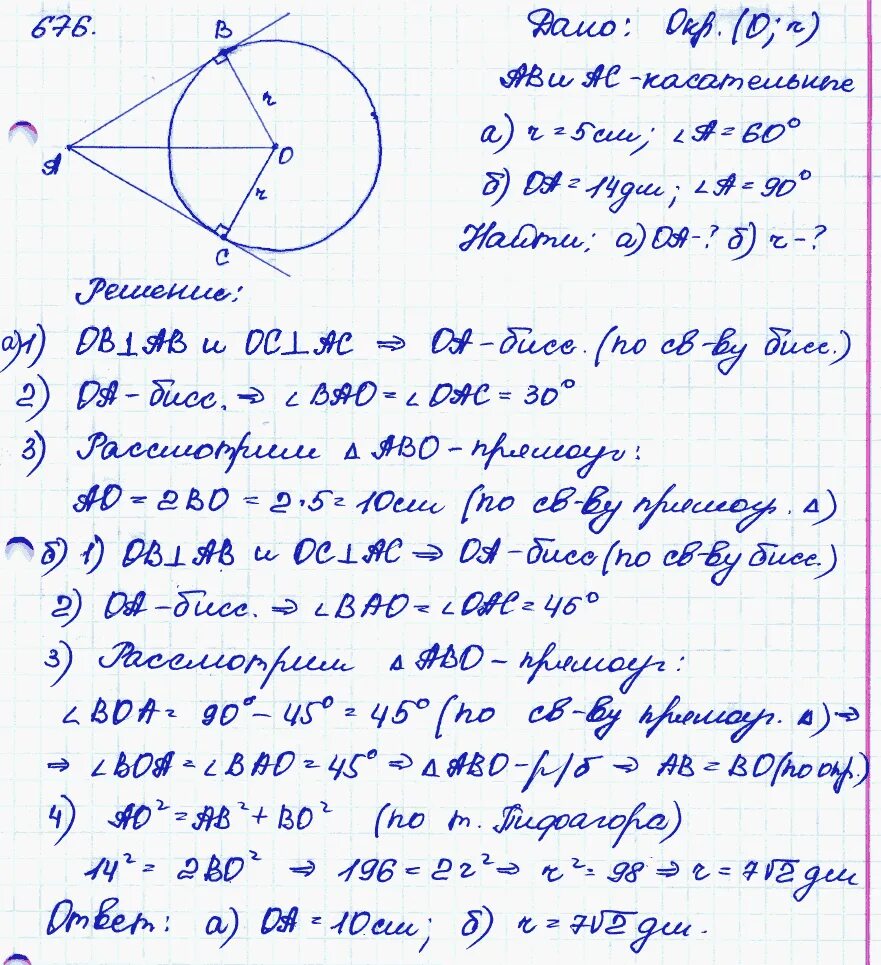 676.
B
r
A
O
r
C
Дано: Окр. (O; r)
AB и AC - касательные
а) r = 5 см; ∠A = 60°
б) OA = 14 дм; ∠A = 90°
Найти; а) OA - ? б) r - ?
Решение:
а) 1) OB⊥AB и OC⊥AC ⇒ OA - бисс. (по св-ву бисс.)
2) OA - бисс. ⇒ ∠BAO = ∠OAC = 30°
3) Рассмотрим △ABO - прямоуг:
AO = 2BO = 2·5 = 10 см (по св-ву прямоуг. △)
б) 1) OB⊥AB и OC⊥AC ⇒ OA - бисс (по св-ву бисс.)
2) OA - бисс. ⇒ ∠BAO = ∠OAC = 45°
3) Рассмотрим △ABO - прямоуг:
∠BOA = 90° - 45° = 45° (по св-ву прямоуг. △) ⇒
⇒ ∠BOA = ∠BAO = 45° ⇒ △ABO - р/б ⇒ AB = BO (по опр.)
4) AO² = AB² + BO² (по т. Пифагора)
14² = 2BO² ⇒ 196 = 2r² ⇒ r² = 98 ⇒ r = 7√2 дм
Ответ: а) OA = 10 см; б) r = 7√2 дм.